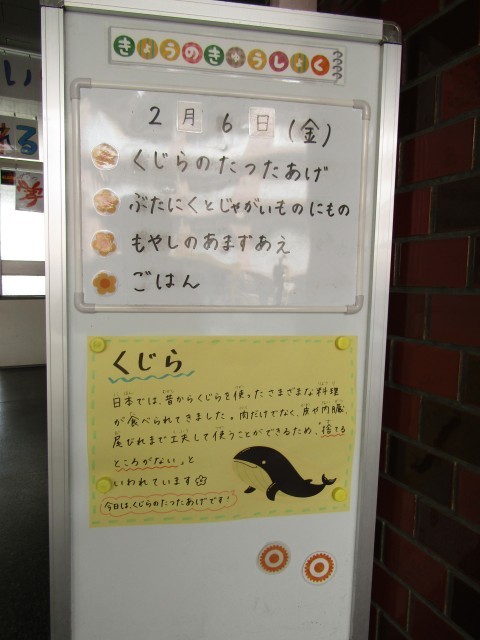 きょうのきゅうしょく
2月6日(金)
くじらのたつたあげ
ぶたにくとじゃがいものにもの
もやしのあまずあえ
ごはん
くじら
日本では、昔からくじらを使ったさまざまな料理
が食べられてきました。肉だけでなく、皮や内臓、
尾びれまで工夫して使うことができるため、"捨てる
ところがない"と
いわれています
今日は、くじらのたつたあげです!
い
れる